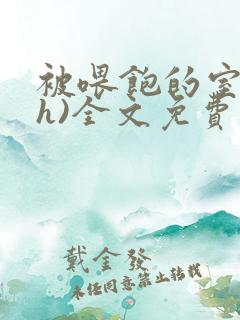 被喂飽的室
h)全文免費
戴金發
未经同意禁止转载